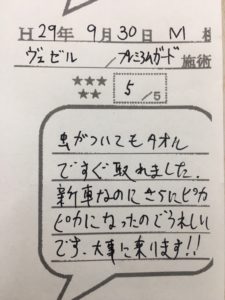 H29年 9月30日 M 様
ヴェゼル / プレミアムガード 施術
★★★
★★
5 /5
虫がついてもタオル
ですぐ取れました。
新車なのにさらにピカ
ピカになったのでうれしい
です。大事に乗ります!!